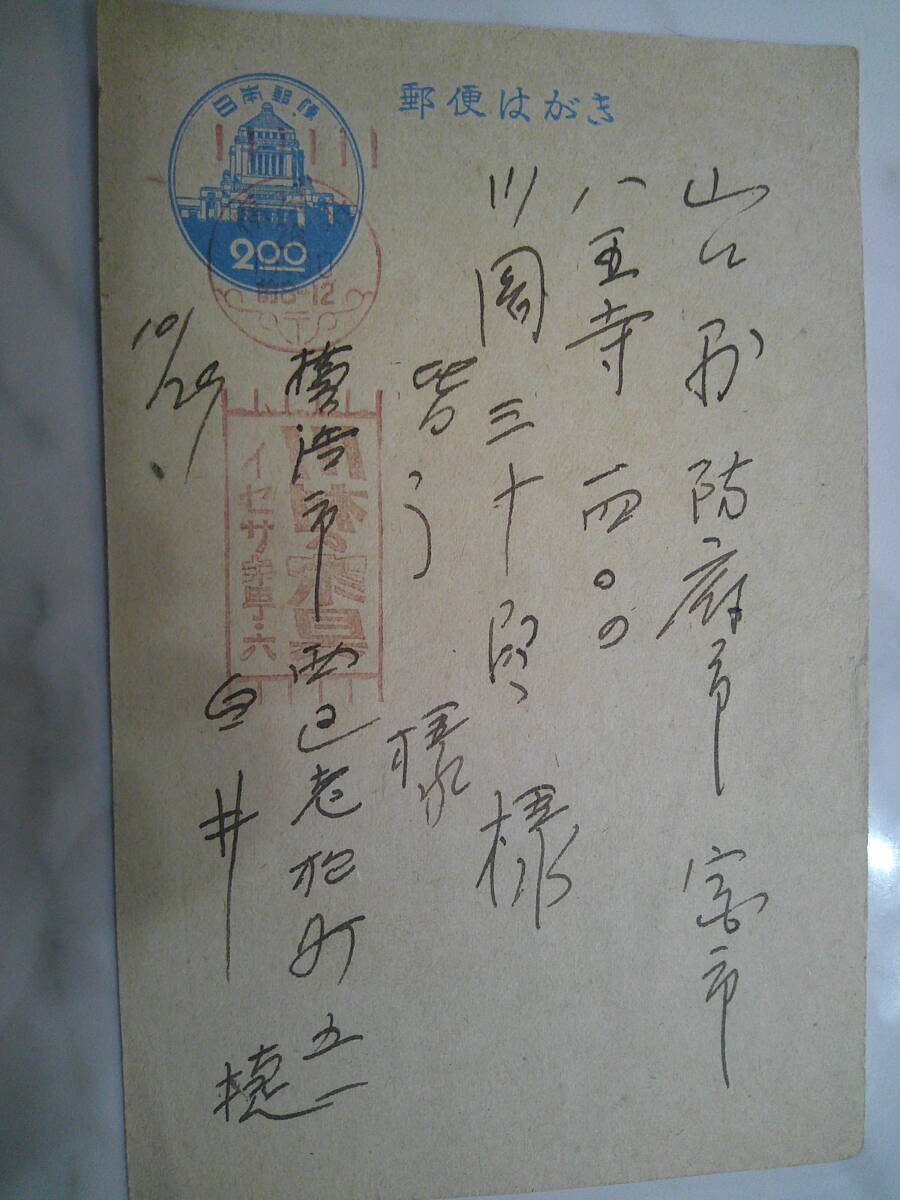 郵便はがき
日本郵便
2.00
前8-12
山口県防府市宮市
八王寺一四〇〇
川岡三十郎様
皆々様
横浜市西区老松町五一
白井
10/29
イセザキ町・六